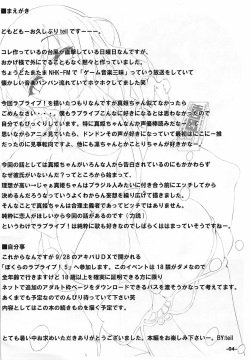 ■まえがき
どもどもーお久しぶりtellですーーー。
コレ作っているの台風が直撃している日曜日なんですが、
おかげ様で外にでることもなく黙々と作ってました。
ちょうどたまたまNHK-FMで「ゲーム音楽三昧」っていう放送をしていて
懐かしい音がバンバン流れていてホクホクで作ってました。
今回ラブライブ!を描いたつもりなんですが真姫ちゃん似てなかったら
ごめんなさい・・・。僕もラブライブこんなに好きになるとは思ってなかったので
自分でもびっくりしています。特に真姫ちゃんなんて最初
思いながらアニメ見ていたら、ドンドンその声が好きになっていって最初はにこにー推
だったのに見事転向ですよ。他にも凛ちゃんとことりちゃんとか大好きです。
今回の話としては真姫ちゃんがいろんな人から告白されているのにもかかわらず
なぜ彼氏がいないんだ?ってところから始まって、
理想が高いーじゃぁ真姫ちゃんはブラジル人みたいに付き合う前にエッチしてから
決めるんだろうなっていうよくわからない妄想を繰り広げて出来ました。
そんなこともあって真姫ちゃんは合理主義者であってビッチではありません。
純粋に恋人がほしいから今回の話があるのです(力説)
というわけでラブライブ!は純粋に大好きです。
■自分事
これからなんですが9/28のアキバUDXで開かれる
「ぼくらのラブライブ! 5」へ参加します。このイベントは18禁がダメなので
全年齢で行きますけど18歳以上を確実に証明できる方に限り
ネットで追加のアダルト枠ページをダウンロードできるパスを渡そうかなって考えてます。
あくまでも予定なのでのんびり待っていて下さい笑
内容としてはこの本の続きものを描く予定です。
とても暑い中お求めいただきありがとうございました。本編をお楽しみ下さいー。 BY:tell
-04-